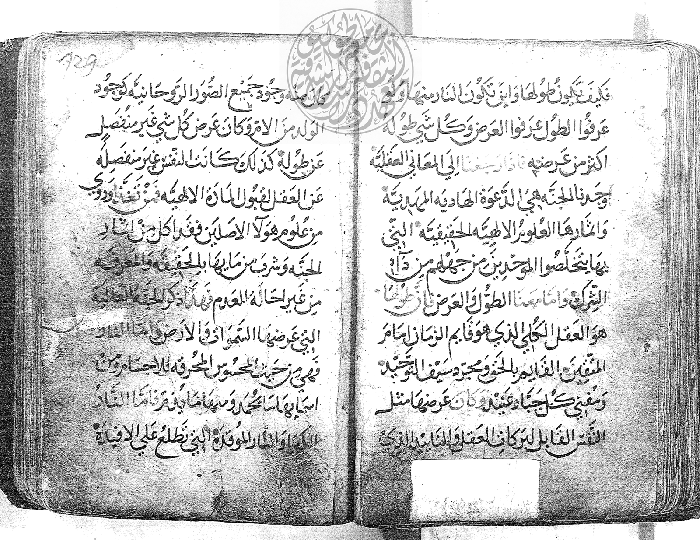 فكيف تكون طولها واين تكون النار منها ولو
عرفوا الطول لعرفوا العرض وكل شي طوله
اكثر من عرضه فاذا رجعنا الى المعاني العقلية
وجدنا الجنة هي الدعوة الهادية المهدية
واثمارها العلوم الالهية الحقيقية التي
بها يتخلصوا الموحدين من جهلهم من داء
الشرك واما معنا الطول والعرض فان طولها
هو العقل الكلي الذي هو قايم الزمان امام
المتقين القايم بالحق ومجرد سيف التوحيد
ومفني كل جبار عنيد وكان عرضها مثل
النفس القابل لبركات العقل والتاييد الذي
129
كان منه وجود جميع الصور الروحانية كوجود
الولد من الام وكان عرض كل شي غير منفصل
عن طوله كذلك كانت النفس غير منفصله
عن العقل لقبول المادة الالهية فمن تغذا وروي
من علوم هولا الاصلين فقد اكل من اثمار
الجنة وشرب من مايها بالحقيقة والمعرفة
من غير احالة العدم فهذا ذكر الجنة
التي عرضها السموات والارض واما النار
فهي من حيث المحسوس المحرقة للاجسام
اسبابها
الكبرا والنار الموقدة التي تطلع على الافيدة